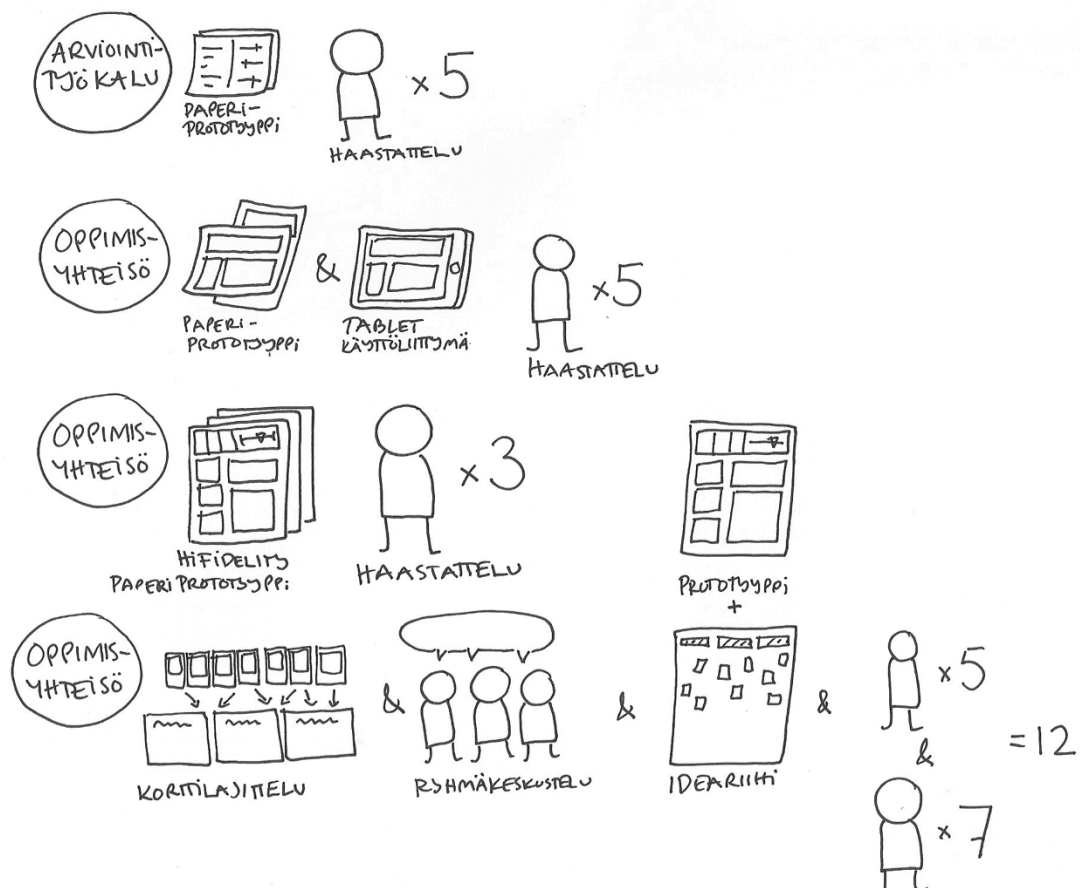 ARVIOINTI-
TYÖKALU
PAPERI-
PROTOTYYPPI
HAASTATTELU
×5
OPPIMIS-
YHTEISÖ
PAPERI-
PROTOTYYPPI
&
TABLET
KÄYTTÖLIITTYMÄ
HAASTATTELU
×5
OPPIMIS-
YHTEISÖ
HIFIDELITY
PAPERI PROTOTYYPPI
HAASTATTELU
×3
OPPIMIS-
YHTEISÖ
KORTTILAJITTELU
&
RYHMÄKESKUSTELU
&
PROTOTYYPPI
+
IDEARIIHI
&
×5
&
×7
=12